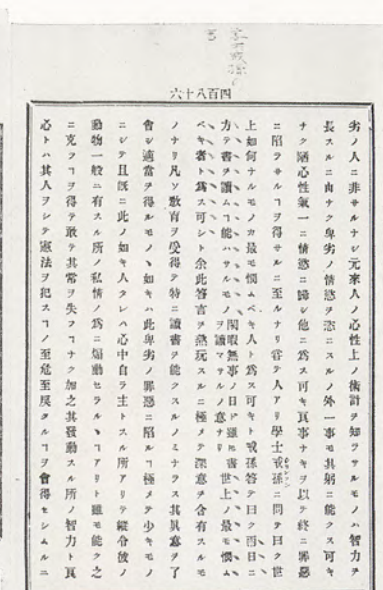 四百八十六
劣ノ人ニ非サルナシ元來人ノ心性上ノ術計ヲ知ラサルモノハ智力ヲ
長スルニ由ナク卑劣ノ情慾ヲ恣ニスルノ外一事モ其躬ニ能クス可キ
ナク陋心性氣一ニ情慾ニ歸シ他ニ爲ス可キ眞事ナキヲ以テ終ニ罪惡
ニ陷ラサルヿヲ得サルニ至ルナリ甞テ人アリ學士戎孫ニ問テ曰ク世
上如何ナルモノカ最モ憫ムヘキ人ト爲ス可キト戎孫答テ曰ク雨日ニ
方テ書ヲ讀ムヿ能ハサルモノ閑暇無事ノ日ト雖モ書ヲ讀マサルノ意ナリ世上ノ最モ憫ム
ベキ者ト爲ス可シト余此答言ヲ熟玩スルニ極メテ深意ヲ含有スルモ
ノナリ凡ソ敎育ヲ受得テ特ニ讀書ヲ能クスルノミナラス其眞意ヲ了
會シ適當ヲ得ルモノヽ如キハ此卑劣ノ罪惡ニ陷ルヿ極メテ少キモノ
ニシテ且既ニ此ノ如キ人タレハ心中自ラ主トスル所アリテ縱令彼ノ
動物一般ニ有スル所ノ私情ノ爲ニ煽動セラルヽヿアリト雖モ能ク之
ニ克ツヿヲ得テ敢テ其常ヲ失フヿナク加之其發動スル所ノ智力ト眞
心トハ其人ヲシテ憲法ヲ犯スヿノ至危至戾タルヿヲ會得セシムルニ